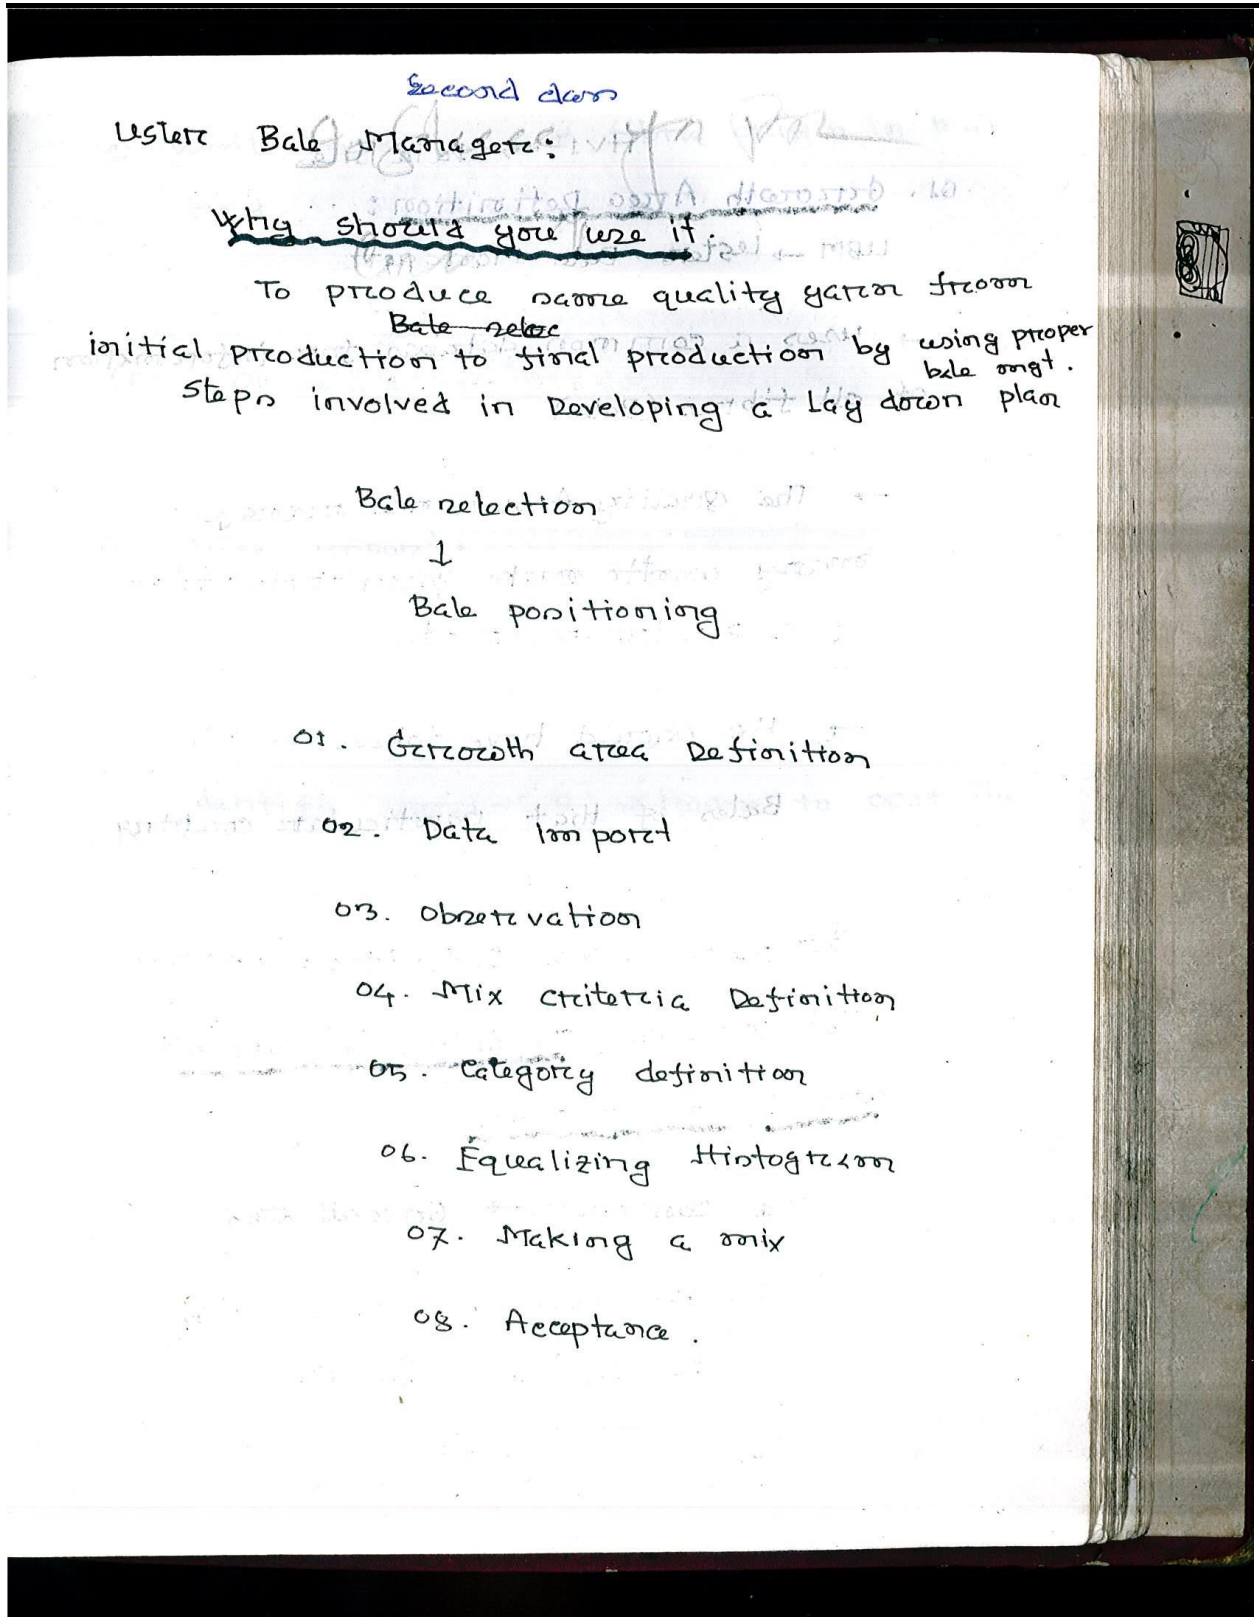 Second class
Uster Bale Manager:
Why should you use it.
To produce same quality yarn from
Bale selec
initial production to final production by using proper
bale mgt.
Steps involved in Developing a Lay down plan
Bale selection
↓
Bale positioning
01. Growth area Definition
02. Data import
03. Observation
04. Mix criteria Definition
05. Category definition
06. Equalizing Histogram
07. Making a mix
08. Acceptance.